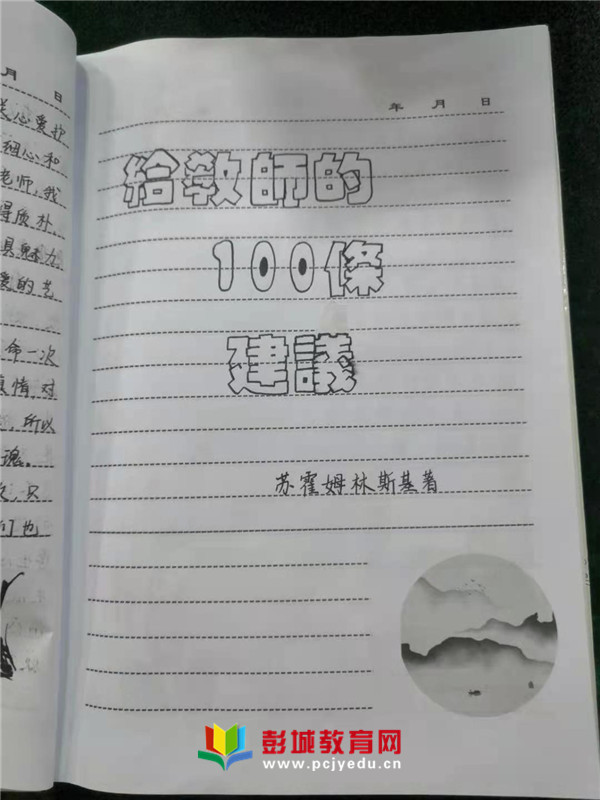 月 日
关心爱护
细心和
老师,我
得质朴
具魅力
爱的艺
命一次
真情对
,所以
魂。
只
们也
年 月 日
給教師的
100條
建議
苏霍姆林斯基著
彭城教育网
www.pcjyedu.cn